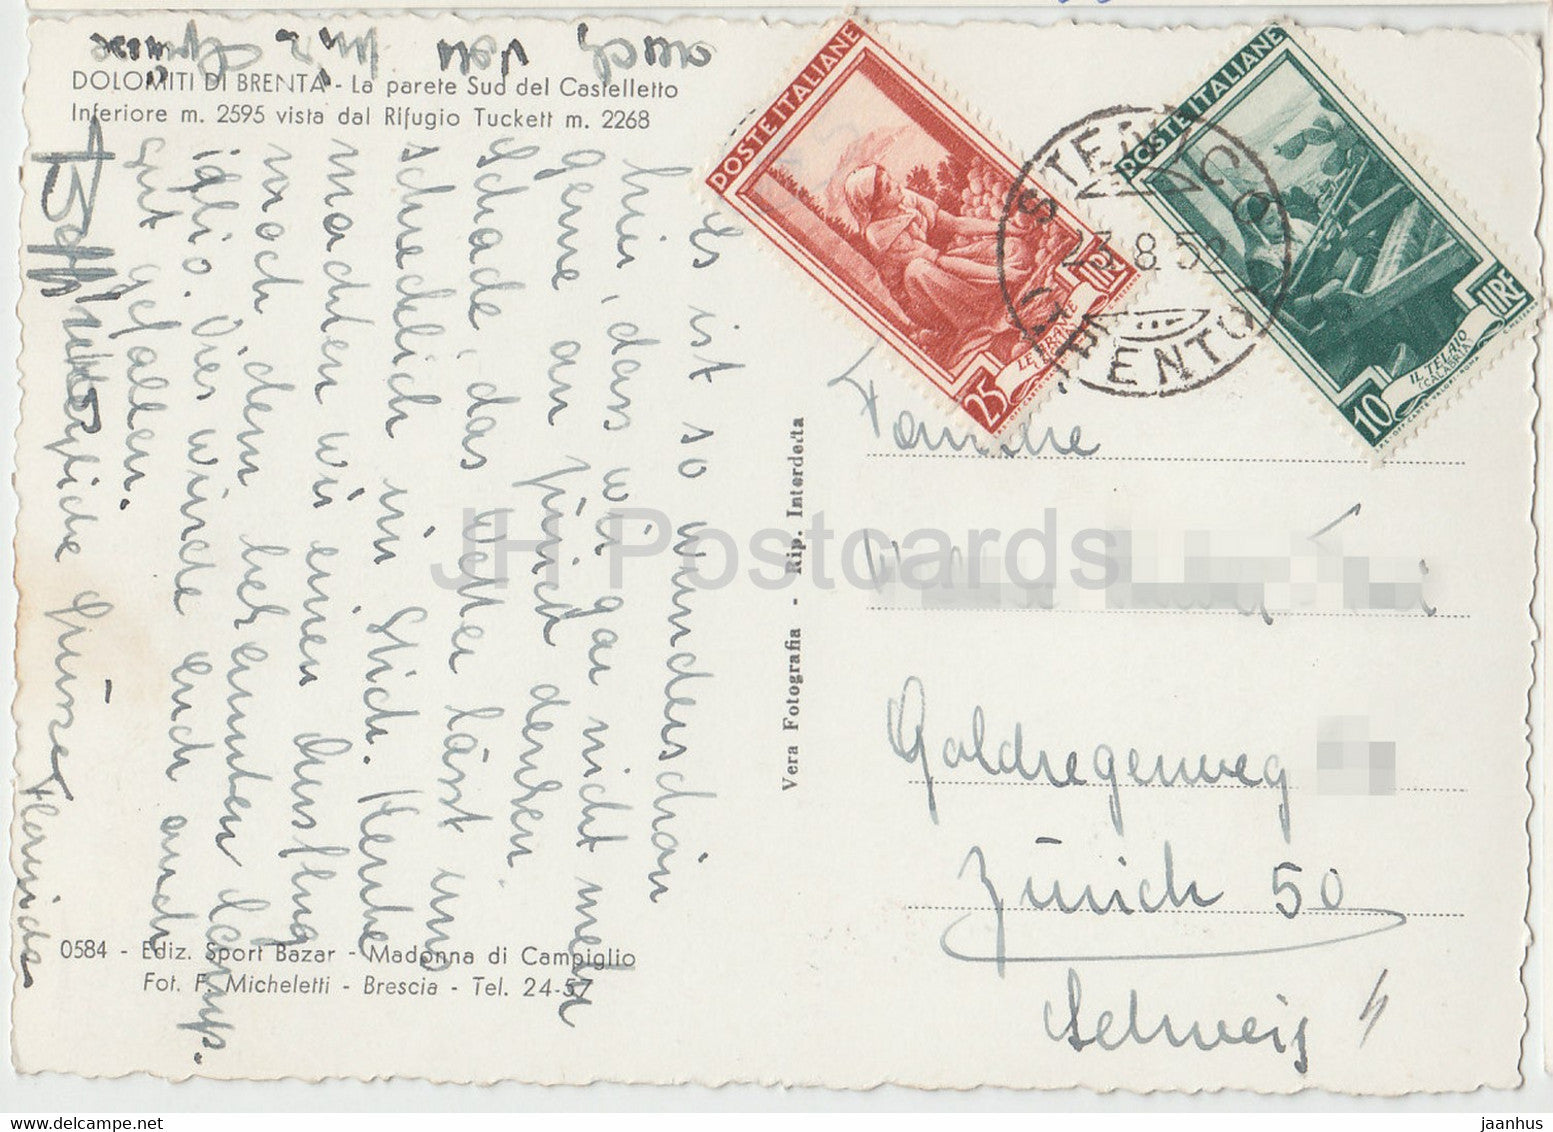 auch von mir
DOLOMITI DI BRENTA - La parete Sud del Castelletto
Inferiore m. 2595 vista dal Rifugio Tuckett m. 2268
Es ist so wunderschön
hier, dass wir gar nicht mehr
gerne an Zürich denken.
Schade, das Wetter lässt uns
schrecklich im Stich. Heute
machten wir einen Ausflug
nach dem bekannten Camp-
iglio. Dies würde euch auch
gut gefallen.
Herzliche Grüsse
POSTE ITALIANE
LIRE 25
POSTE ITALIANE
LIRE 10
IL TELAIO
(CALABRIA)
23.8.52
TRENTO
Vera Fotografia - Rip. Interdetta
Familie
Goldregenweg
Zürich 50
Schweiz
0584 - Ediz. Sport Bazar - Madonna di Campiglio
Fot. F. Micheletti - Brescia - Tel. 24-57
JH Postcards
jaanhus